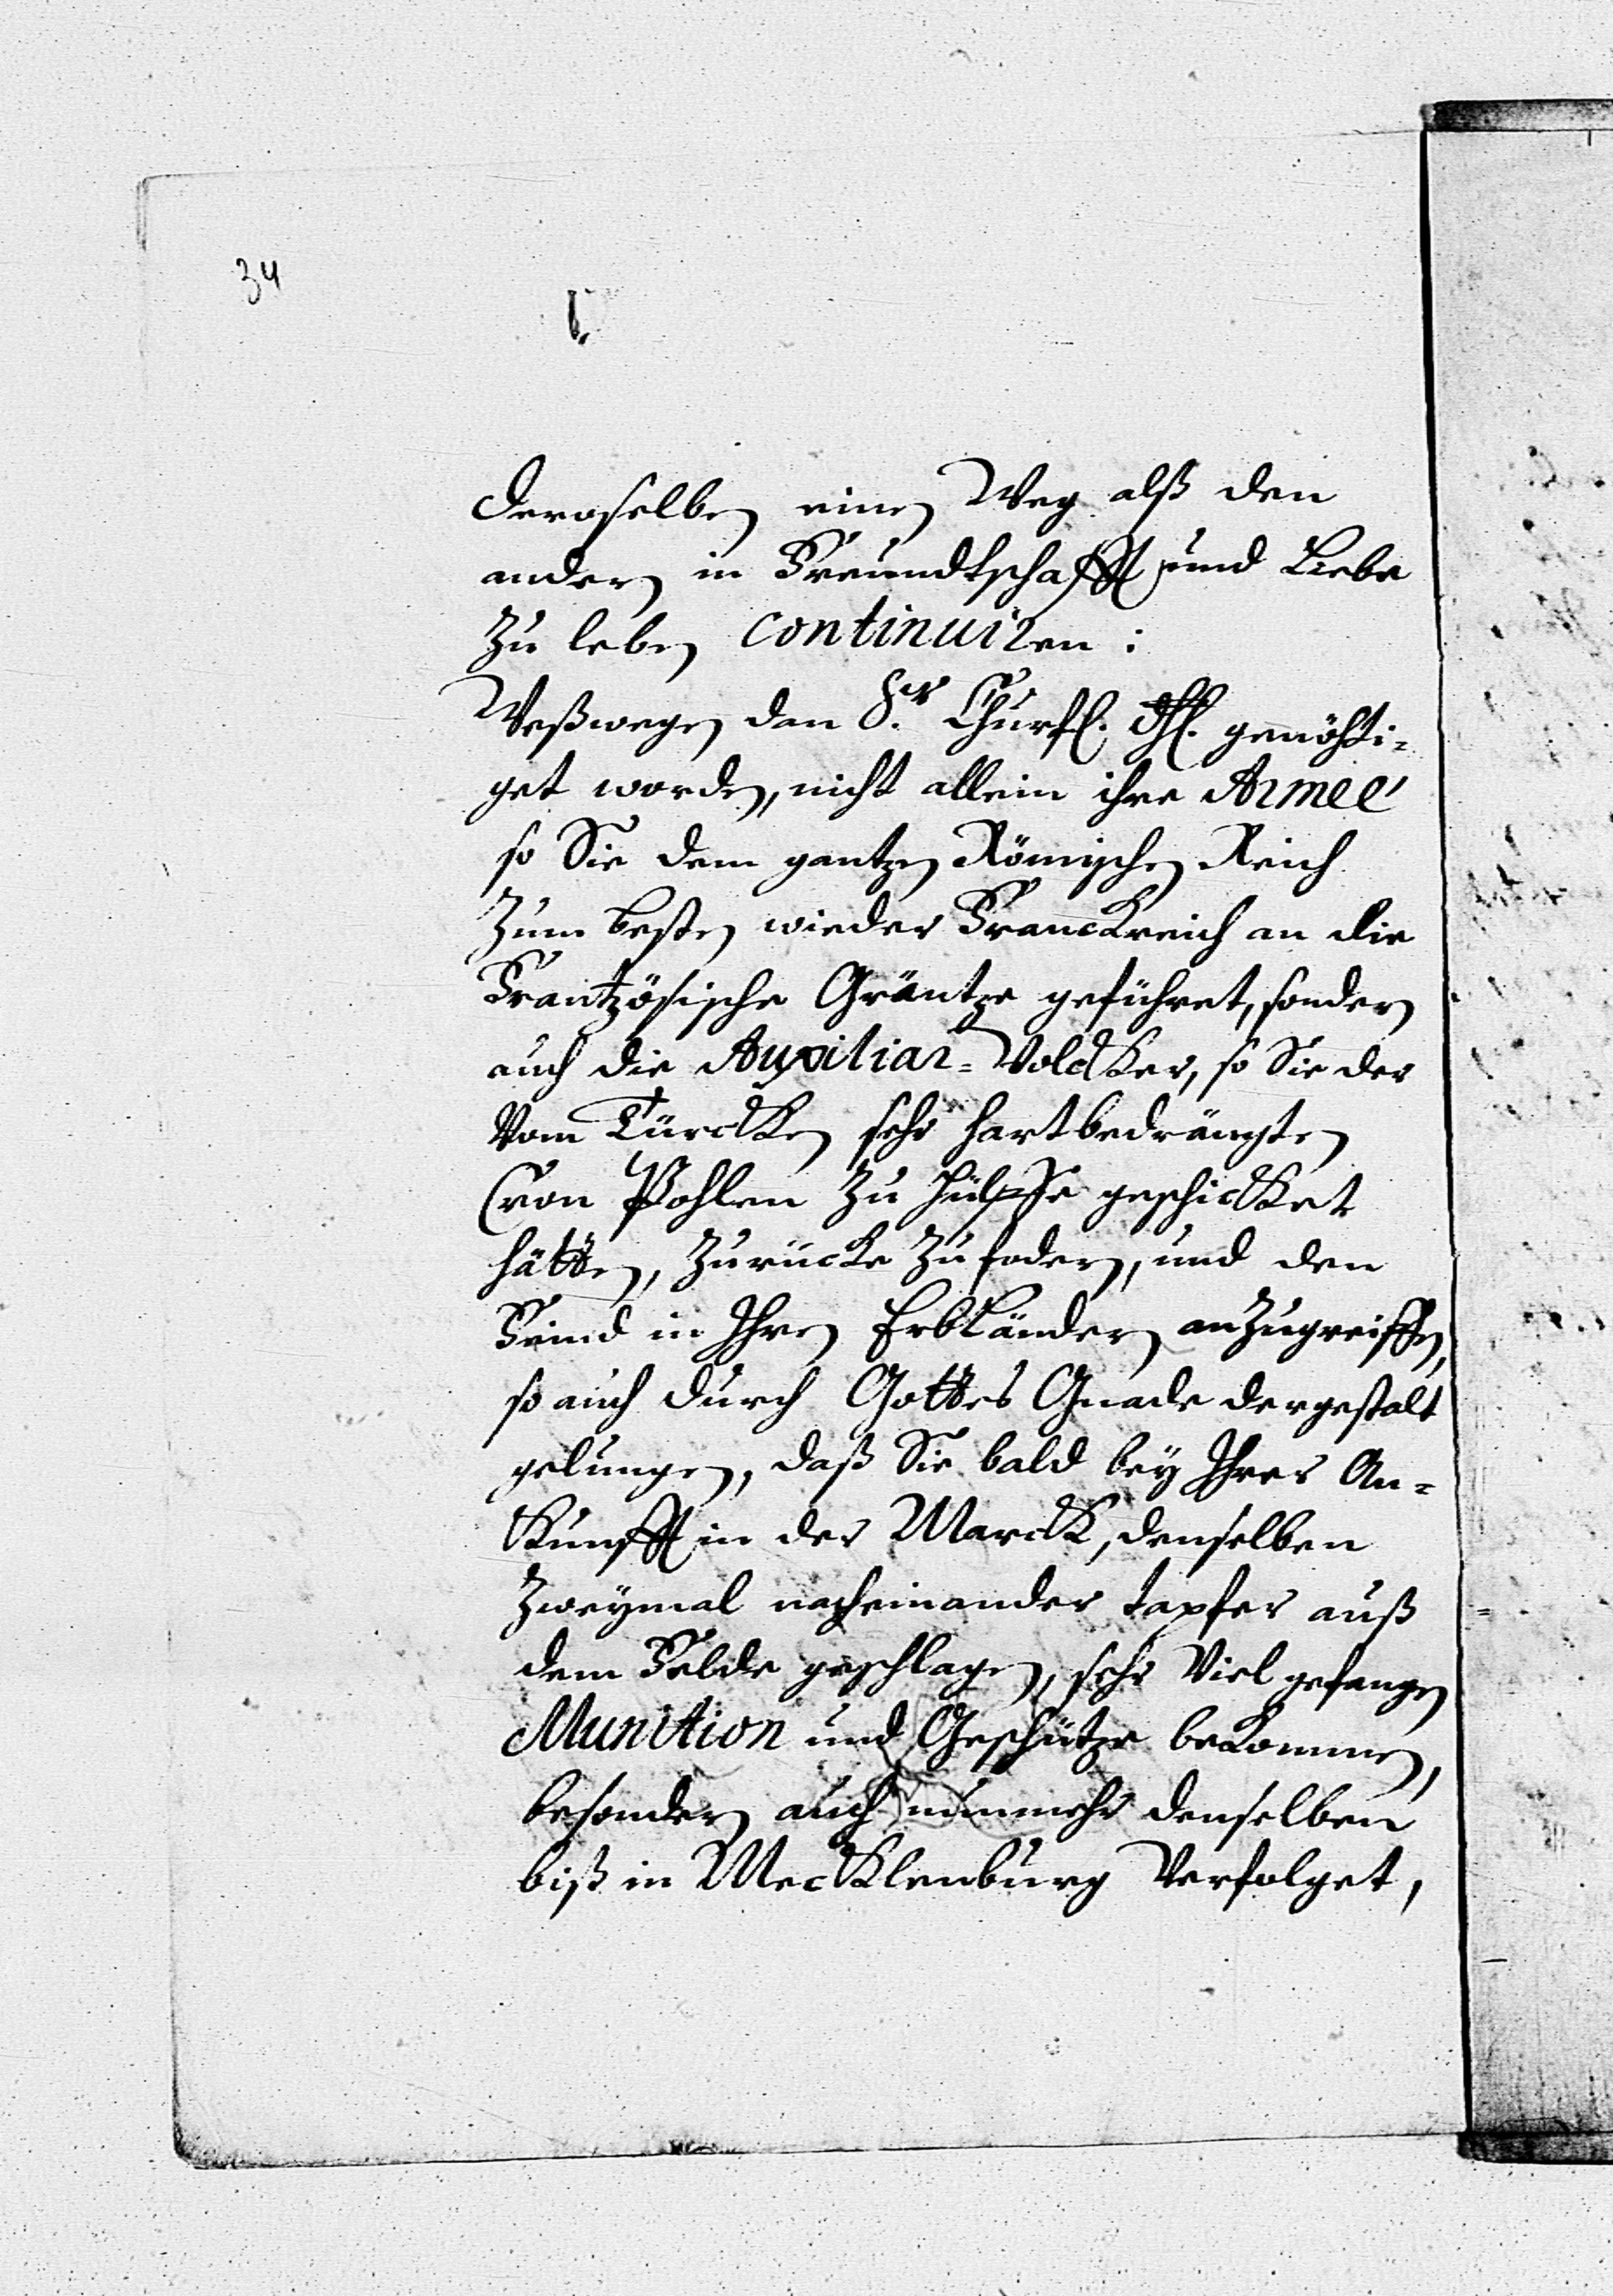 34
deroselben einen Weg alß den
andern in Freundtschafft und Liebe
Zu leben continuiren:
Weßwegen dan Sr Churfl. Dhl. genöhti=
get worden, nicht allein ihre Armeé
so Sie dem gantzen Römischen Reich
Zum besten wieder Franckreich an die
Frantzösische Gräntze geführet, sondern
auch die Auxiliar=Volcker, so Sie der
Vom Türcken sehr hartbedrängten
Cron Pohlen Zu hülffe geschicket
hätten, Zurücke Zu fodern, und den
Feind in Ihren Erbländern anZugreiffen,
so auch durch Gottes Gnade dergestalt
gelungen, daß Sie bald bey Ihrer An=
Kunfft in der Marck, denselben
Zweymal nacheinander tapfer auß
dem Felde geschlagen, sehr Viel gefangen
Munition und Geschütze bekommen,
besondern auch nunmehr denselben
biß in Mecklenburg Verfolget,